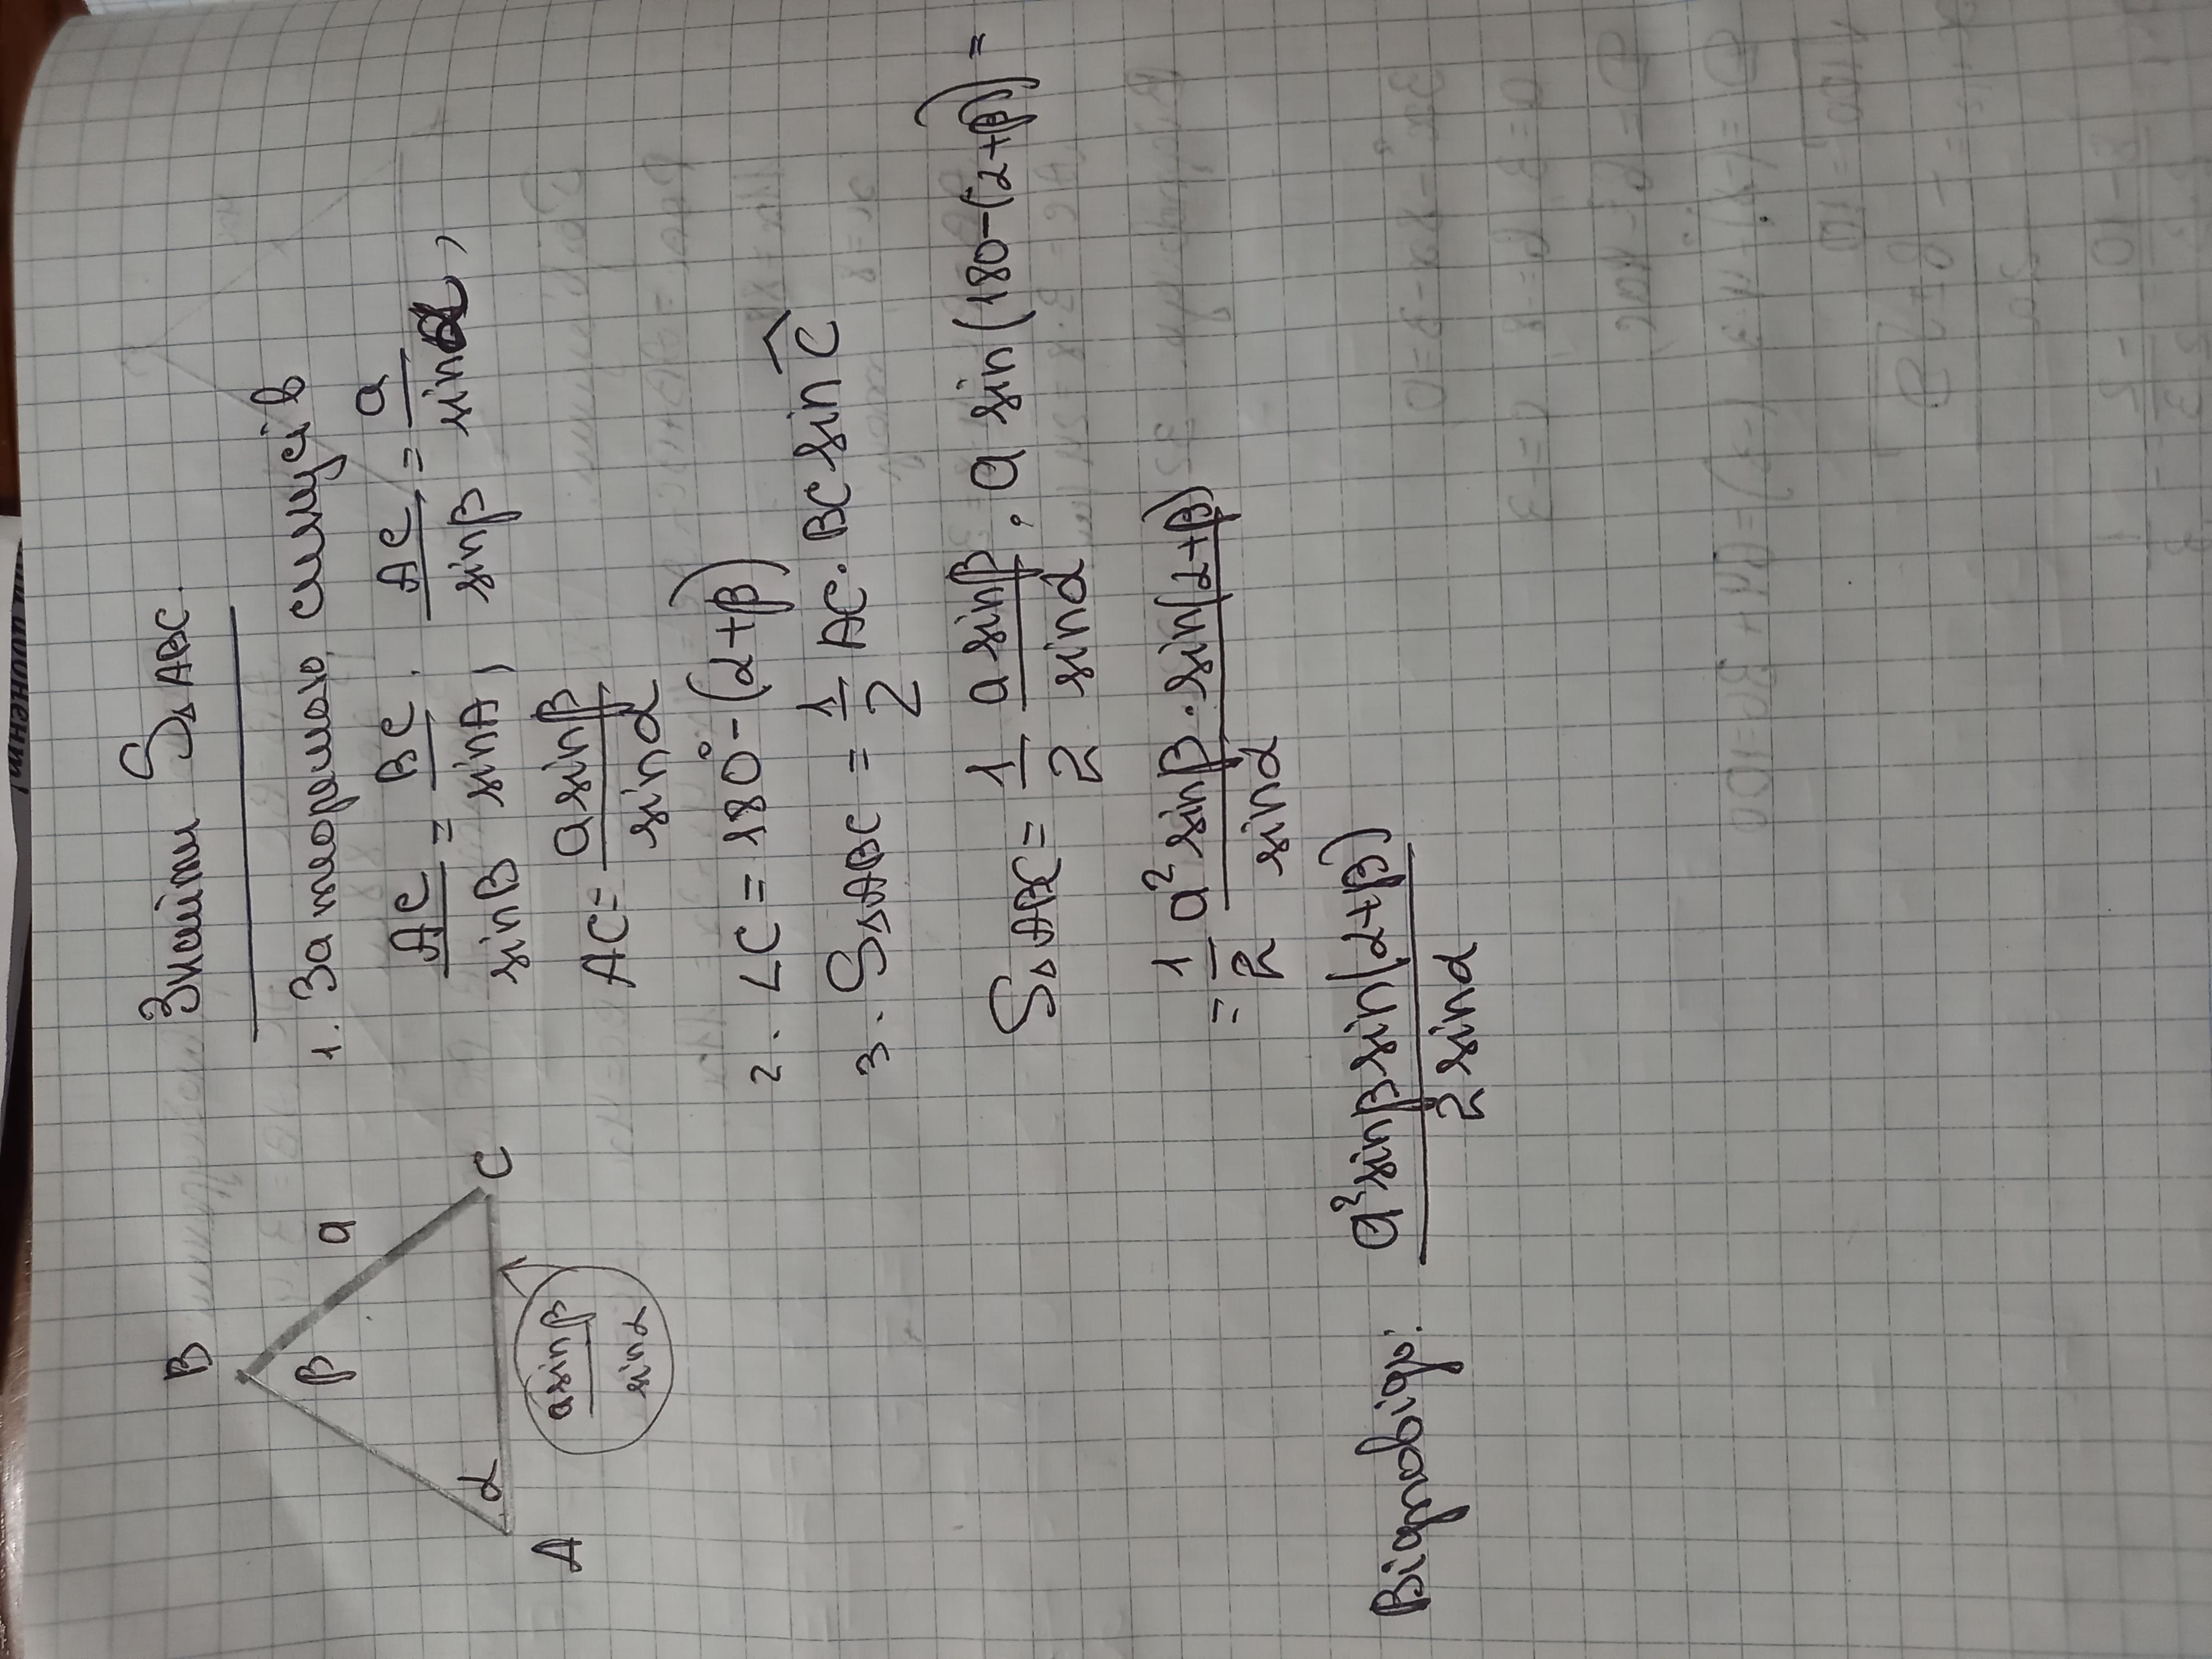 Знайти S△ABC.
B
a
β
α
A
C
a sinβ / sinα
1. За теоремою синусів
AC / sinB = BC / sinA; AC / sinβ = a / sinα,
AC = a sinβ / sinα
2. ∠C = 180° - (α+β)
3. S△ABC = 1/2 AC · BC sin Ĉ
S△ABC = 1/2 a sinβ / sinα · a sin(180-(α+β)) =
= 1/2 a² sinβ · sin(α+β) / sinα
Відповідь: a² sinβ sin(α+β) / 2 sinα